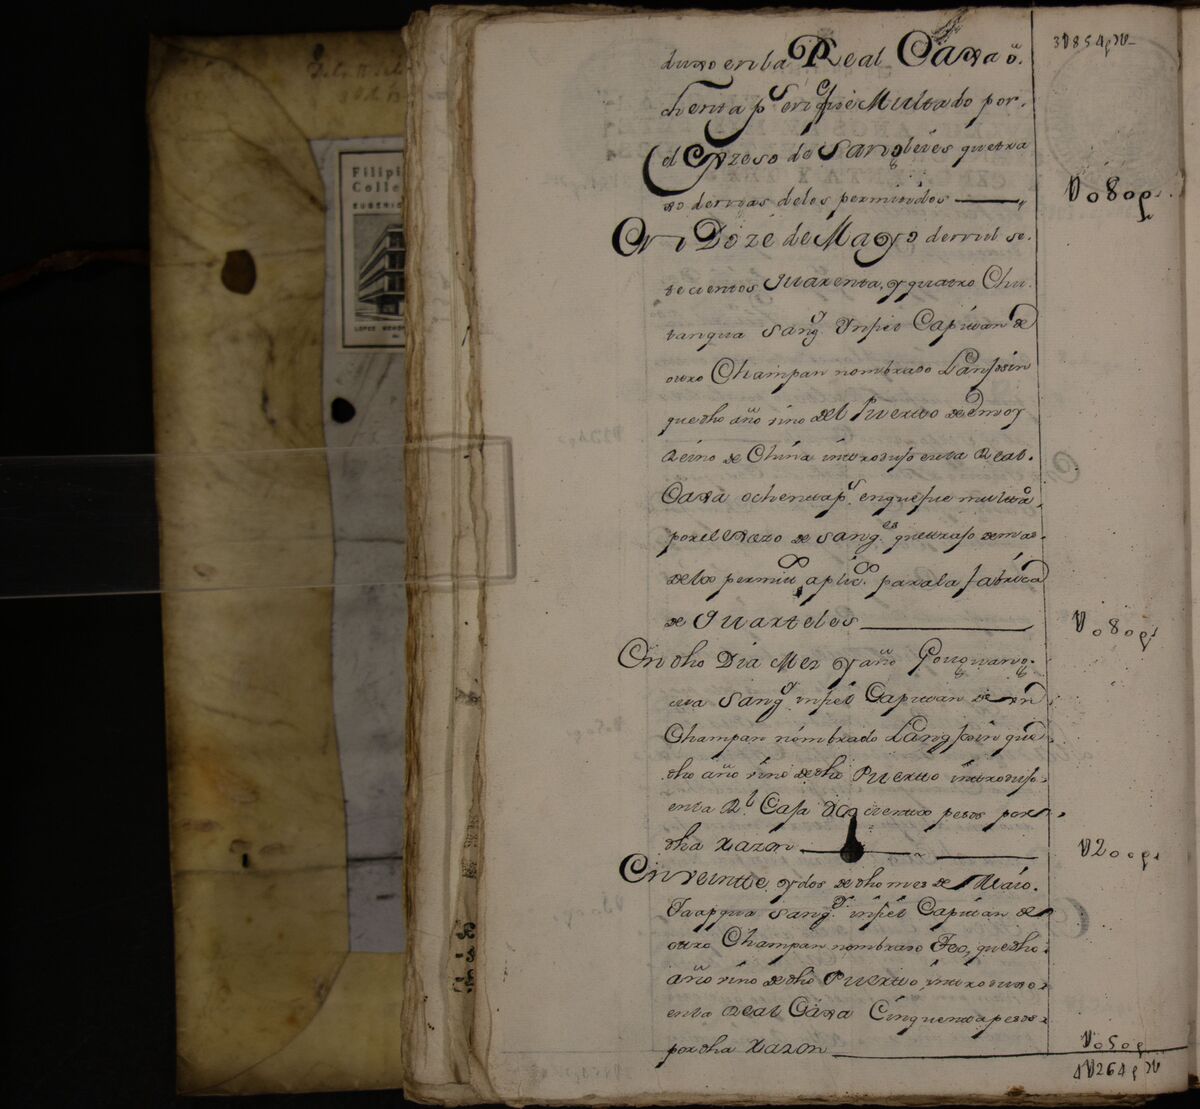 3U854pN–
duxo en la Real Caxa o-
chenta ps en q̃ fue Multado por
el Exzeso de Sangleies que tra
xo demas delos permitidos
U080p.
En Doze de Mayo de mil se-
tecientos Quarenta, y quatro Chu-
tanqua Sangy Ynfiel Capitan de
otro Champan nombrado Lanssin
que dho año vino del Puerto de Emuy
Reino de China introdujo en la Real
Caxa ochenta ps en que fue multdo
por el exzo de Sangles que trajo demas
delos permitdos aplicdos para la fabrica
de Quarteles
U080p.
En dho Dia Mes y año
Sangy infiel Capitan de un
Champan nombrado Langssin que
dho año vino de dho Puerto introdujo
en la Rl Caja Docientos pesos por
dha Razon
U200p.
En veinte, y dos de dho mes de Maio
Taapqua Sangy infiel Capitan de
otro Champan nombrado Feo, que dho
año vino de dho Puerto introduxo
en la Real Caxa Cinquenta pesos
por dha Razon
U050p
4U264pN
Filipi
Colle
EUGENIO
LOPEZ MEMO